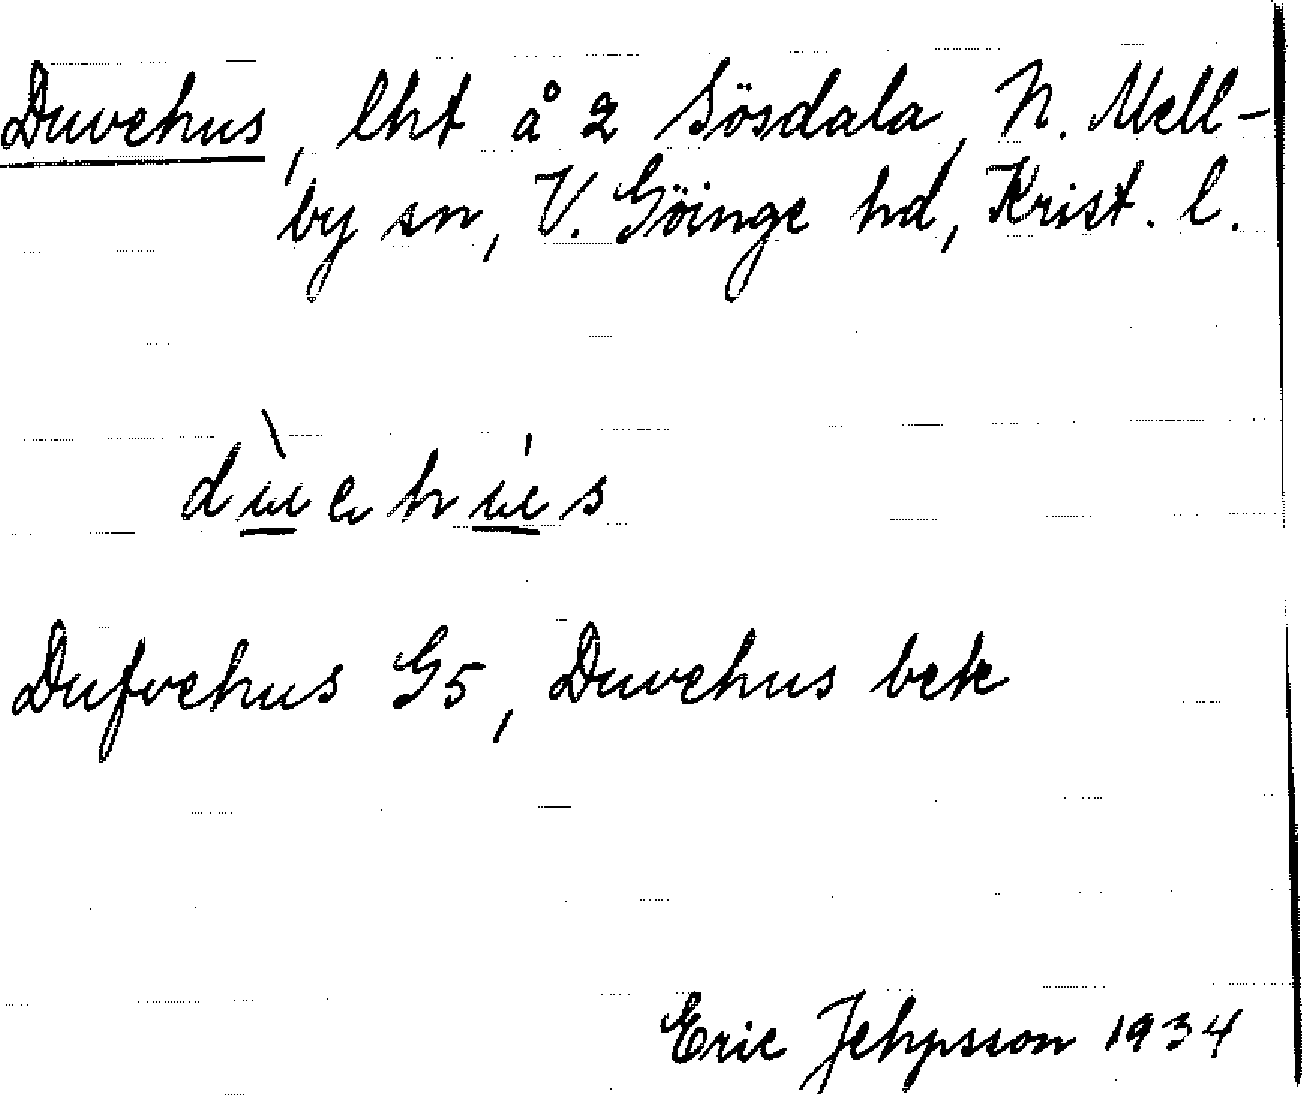 Duvehus, lht å 2 Sösdala, N. Mell-
by sn, V. Göinge hd, Krist. l.
dùehús
Dufvehus G5, Duvehus bek
Eric Jehpsson 1934